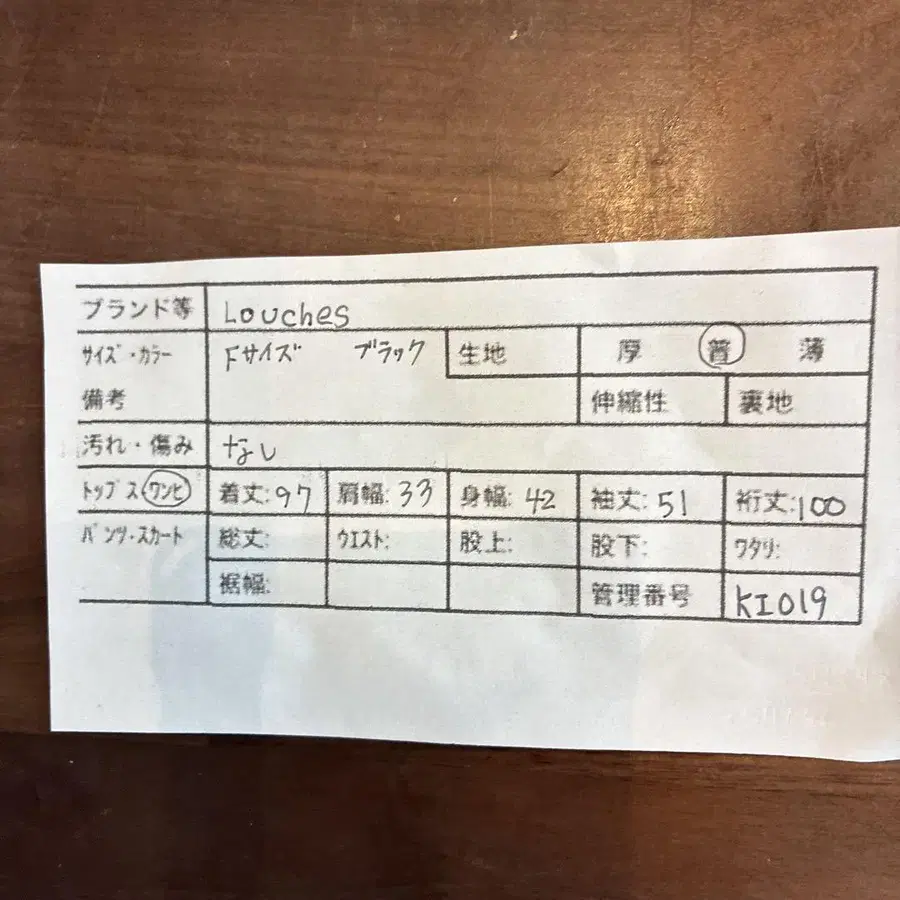 ブランド等 Louches
サイズ・カラー Fサイズ ブラック 生地 厚 普 薄
備考 伸縮性 裏地
汚れ・傷み なし
トップス・ワンピ 着丈:97 肩幅:33 身幅:42 袖丈:51 裄丈:100
パンツ・スカート 総丈: ウエスト: 股上: 股下: ワタリ:
裾幅: 管理番号 KI019